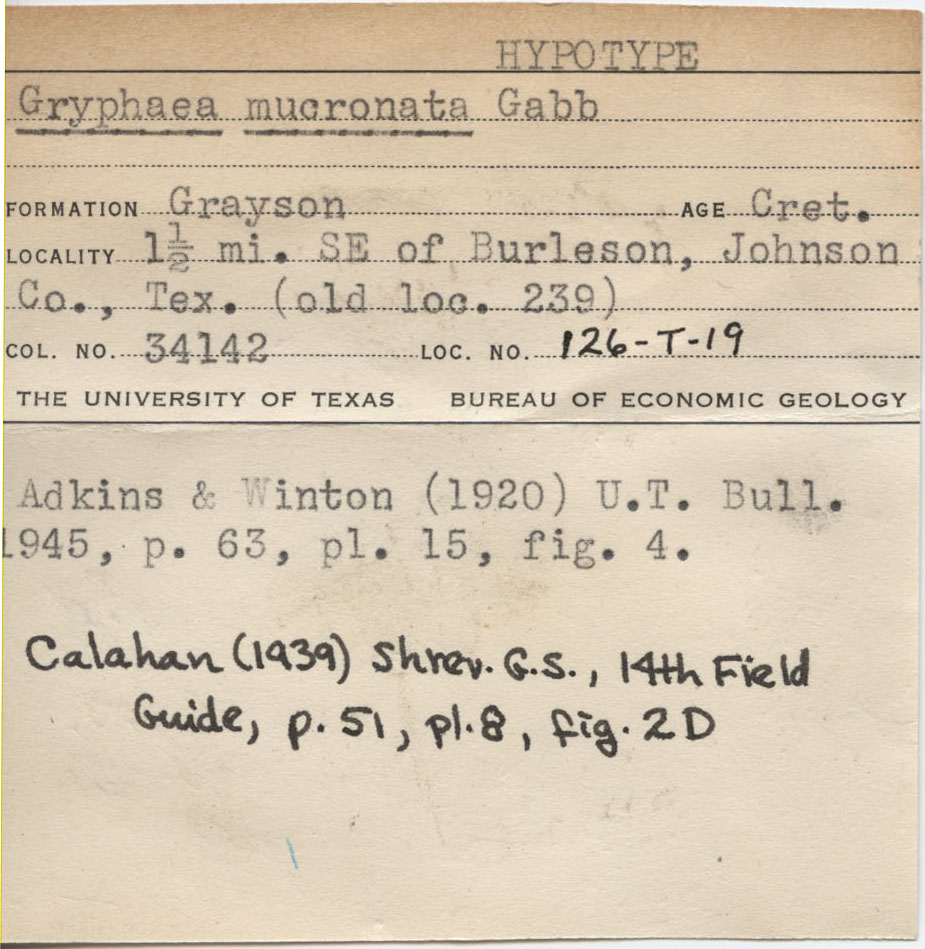 HYPOTYPE
Gryphaea mucronata Gabb
FORMATION Grayson AGE Cret.
LOCALITY 1½ mi. SE of Burleson, Johnson
Co., Tex. (old loc. 239)
COL. NO. 34142 LOC. NO. 126-T-19
THE UNIVERSITY OF TEXAS BUREAU OF ECONOMIC GEOLOGY
Adkins & Winton (1920) U.T. Bull.
1945, p. 63, pl. 15, fig. 4.
Calahan (1939) Shrev. G.S., 14th Field
Guide, p. 51, pl. 8, fig. 2D